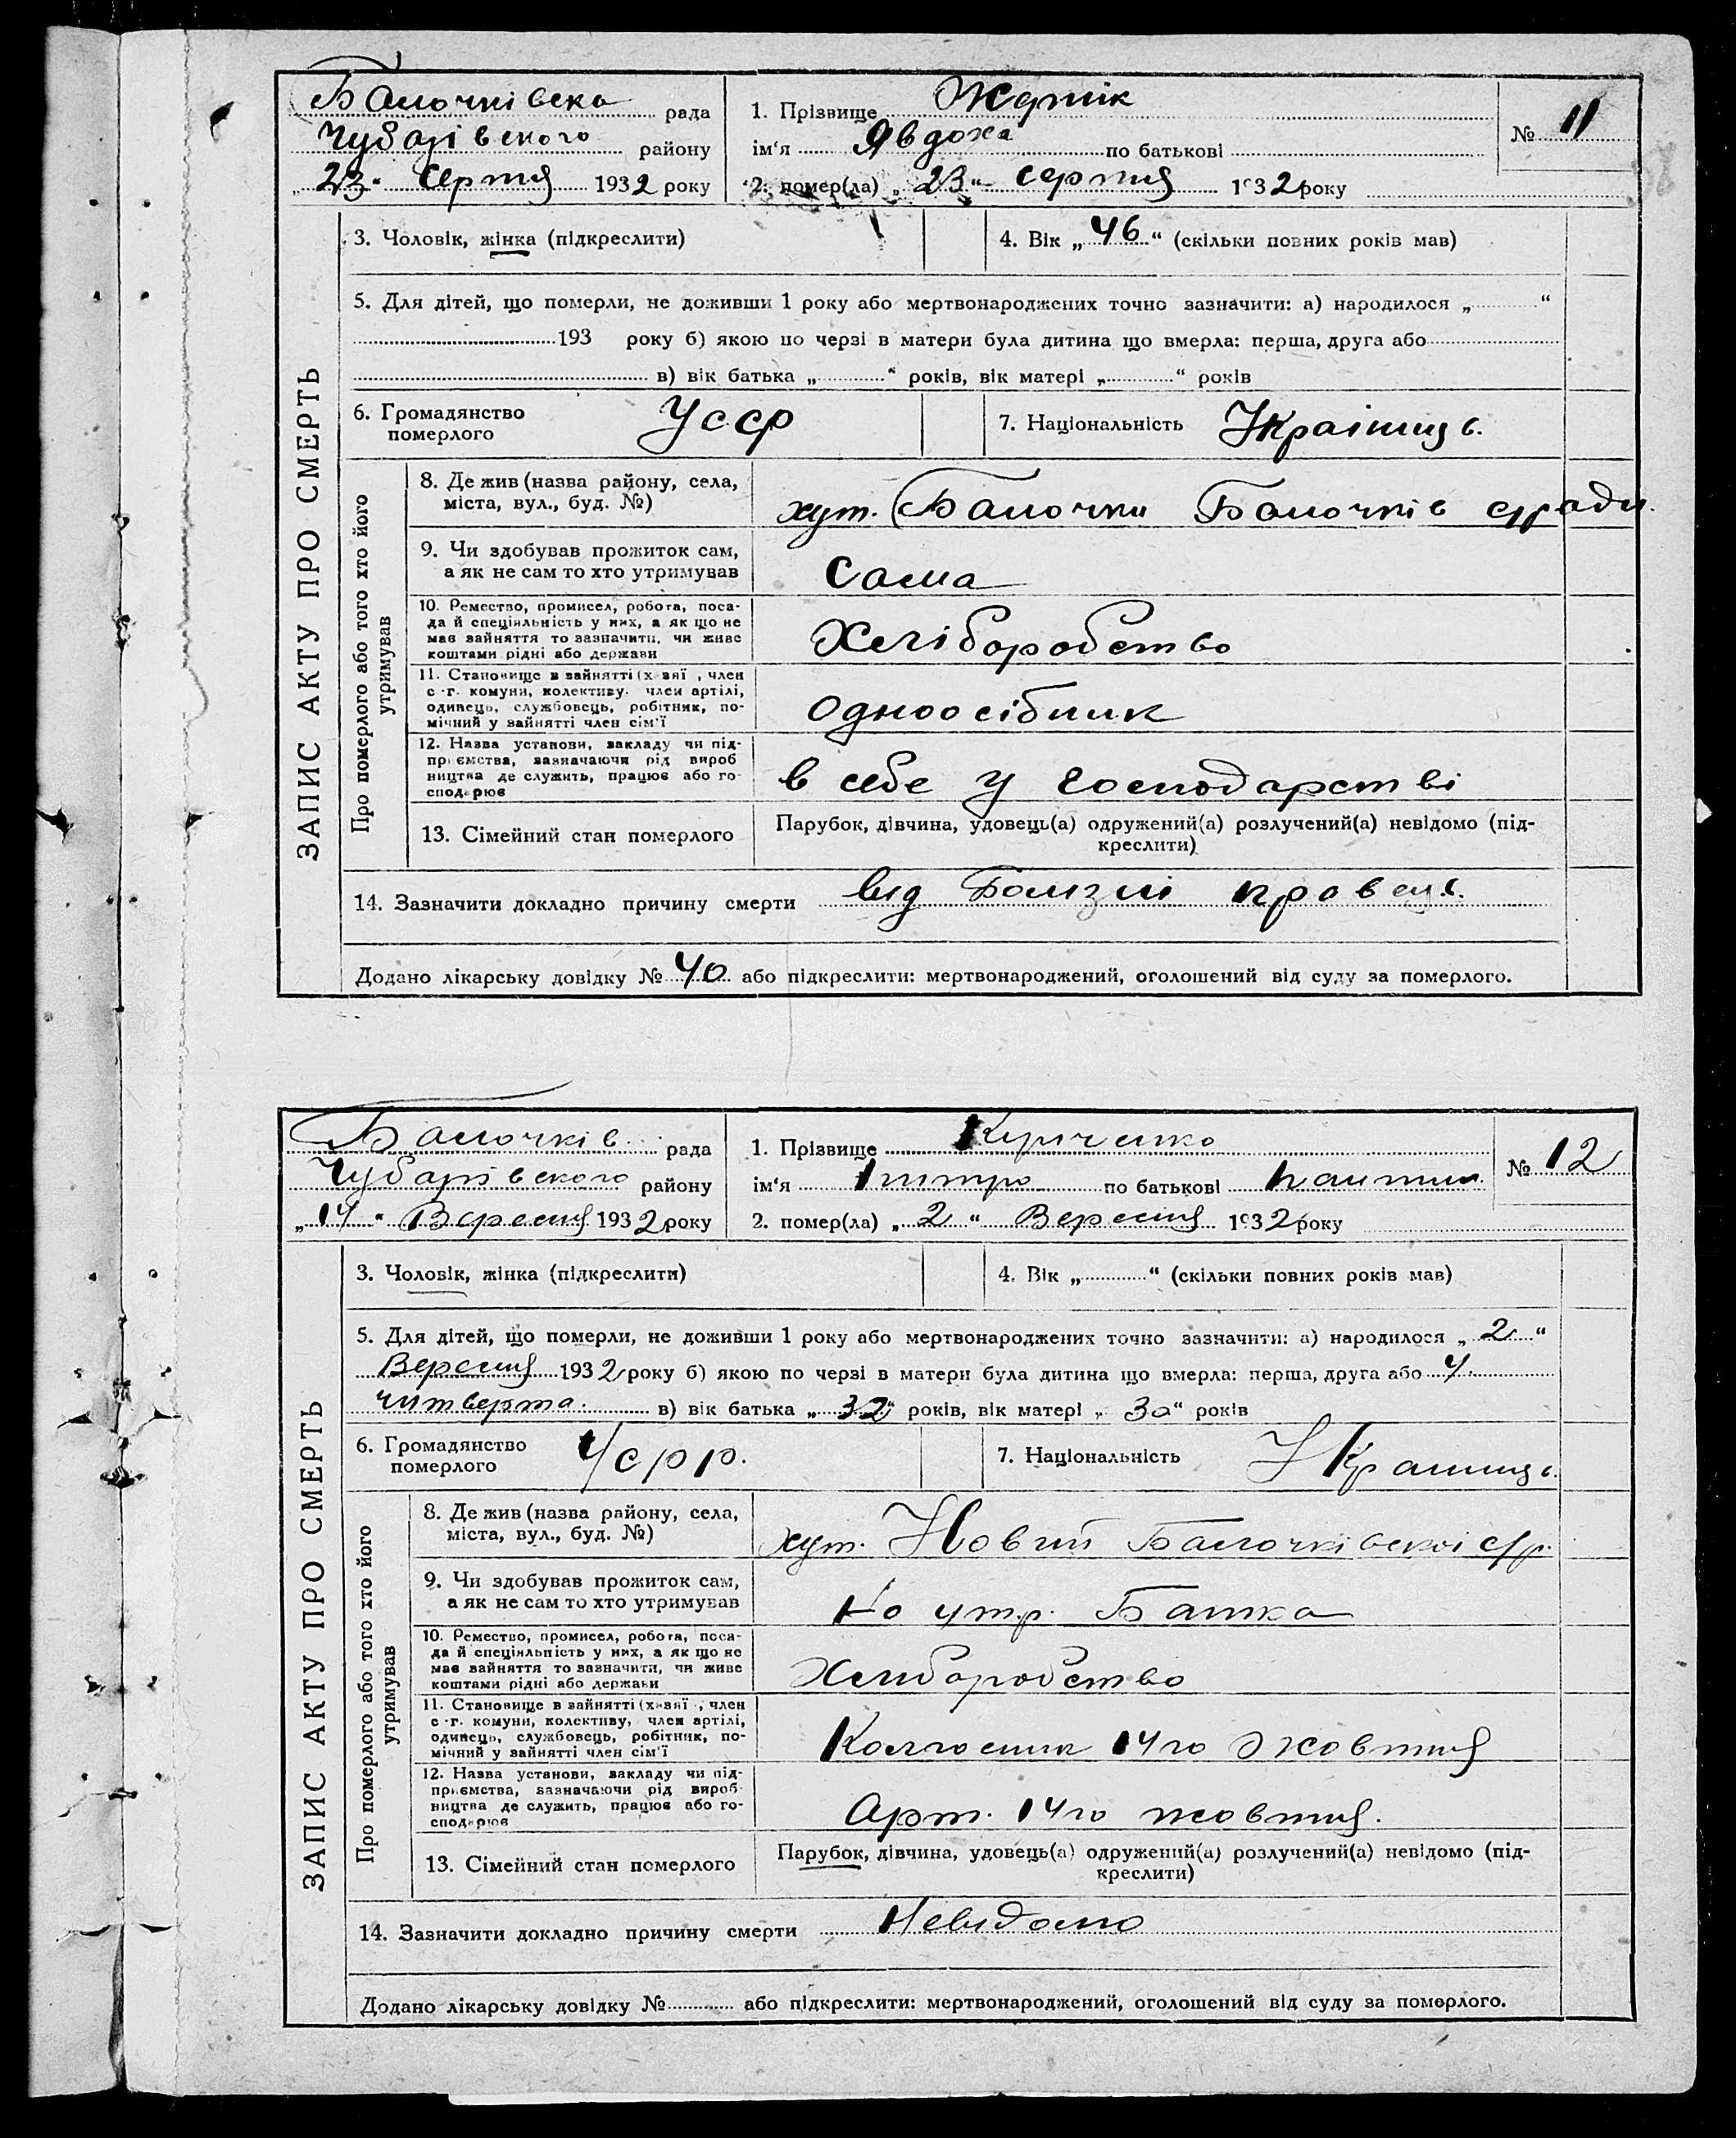 Балочківська рада
Чубарівського району
„23“ Серпня 1932 року
1. Прізвище
ім‘я Явдоха по батькові
2. помер(ла) „23“ серпня 1932 року
№ 11
ЗАПИС АКТУ ПРО СМЕРТЬ
3. Чоловік, жінка (підкреслити)
4. Вік „46“ (скільки повних років мав)
5. Для дітей, що померли, не доживши 1 року або мертвонароджених точно зазначити: а) народилося „ “
193 року б) якою по черзі в матери була дитина що вмерла: перша, друга або
в) вік батька „ “ років, вік матері „ “ років
6. Громадянство
померлого
Усср
7. Національність Українць.
Про померлого або того хто його
утримував
8. Де жив (назва району, села,
міста, вул., буд. №)
хут. Балочки Балочків с/ради.
9. Чи здобував прожиток сам,
а як не сам то хто утримував
Сама
10. Ремество, промисел, робота, поса-
да й спеціяльність у них, а як що не
має зайняття то зазначити, чи живе
коштами рідні або держави
Хліборобство
11. Становище в зайнятті (хазяї , член
с.-г. комуни, колективу, член артілі,
одинець, службовець, робітник, по-
мічний у зайнятті член сім‘ї
одноосібник
12. Назва установи, закладу чи під-
приємства, зазначаючи рід вироб
ництва де служить, працює або го-
сподарює
в себе у господарстві
13. Сімейний стан померлого
Парубок, дівчина, удовець(а) одружений(а) розлучений(а) невідомо (під-
креслити)
14. Зазначити докладно причину смерти від
Додано лікарську довідку № 40 або підкреслити: мертвонароджений, оголошений від суду за померлого.
Балочків. рада
Чубарівського району
„14“ Вересня 1932 року
1. Прізвище
ім‘я по батькові
2. помер(ла) „2“ Вересня 1932 року
№ 12
ЗАПИС АКТУ ПРО СМЕРТЬ
3. Чоловік, жінка (підкреслити)
4. Вік „ “ (скільки повних років мав)
5. Для дітей, що померли, не доживши 1 року або мертвонароджених точно зазначити: а) народилося „2“
Вересня 1932 року б) якою по черзі в матери була дитина що вмерла: перша, друга або 4.
читверта. в) вік батька „32“ років, вік матері „30“ років
6. Громадянство
померлого
Усрр.
7. Національність Українць.
Про померлого або того хто його
утримував
8. Де жив (назва району, села,
міста, вул., буд. №)
хут. Новий Балочківської с/р.
9. Чи здобував прожиток сам,
а як не сам то хто утримував
На утр. Батка
10. Ремество, промисел, робота, поса-
да й спеціяльність у них, а як що не
має зайняття то зазначити, чи живе
коштами рідні або держави
Хлиборобство
11. Становище в зайнятті (хазяї , член
с.-г. комуни, колективу, член артілі,
одинець, службовець, робітник, по-
мічний у зайнятті член сім‘ї
Колгосник 14го жовтня
12. Назва установи, закладу чи під-
приємства, зазначаючи рід вироб-
ництва де служить, працює або го-
сподарює
Арт. 14го жовтня.
13. Сімейний стан померлого
Парубок, дівчина, удовець(а) одружений(а) розлучений(а) невідомо (під-
креслити)
14. Зазначити докладно причину смерти Невидомо
Додано лікарську довідку № або підкреслити: мертвонароджений, оголошений від суду за померлого.